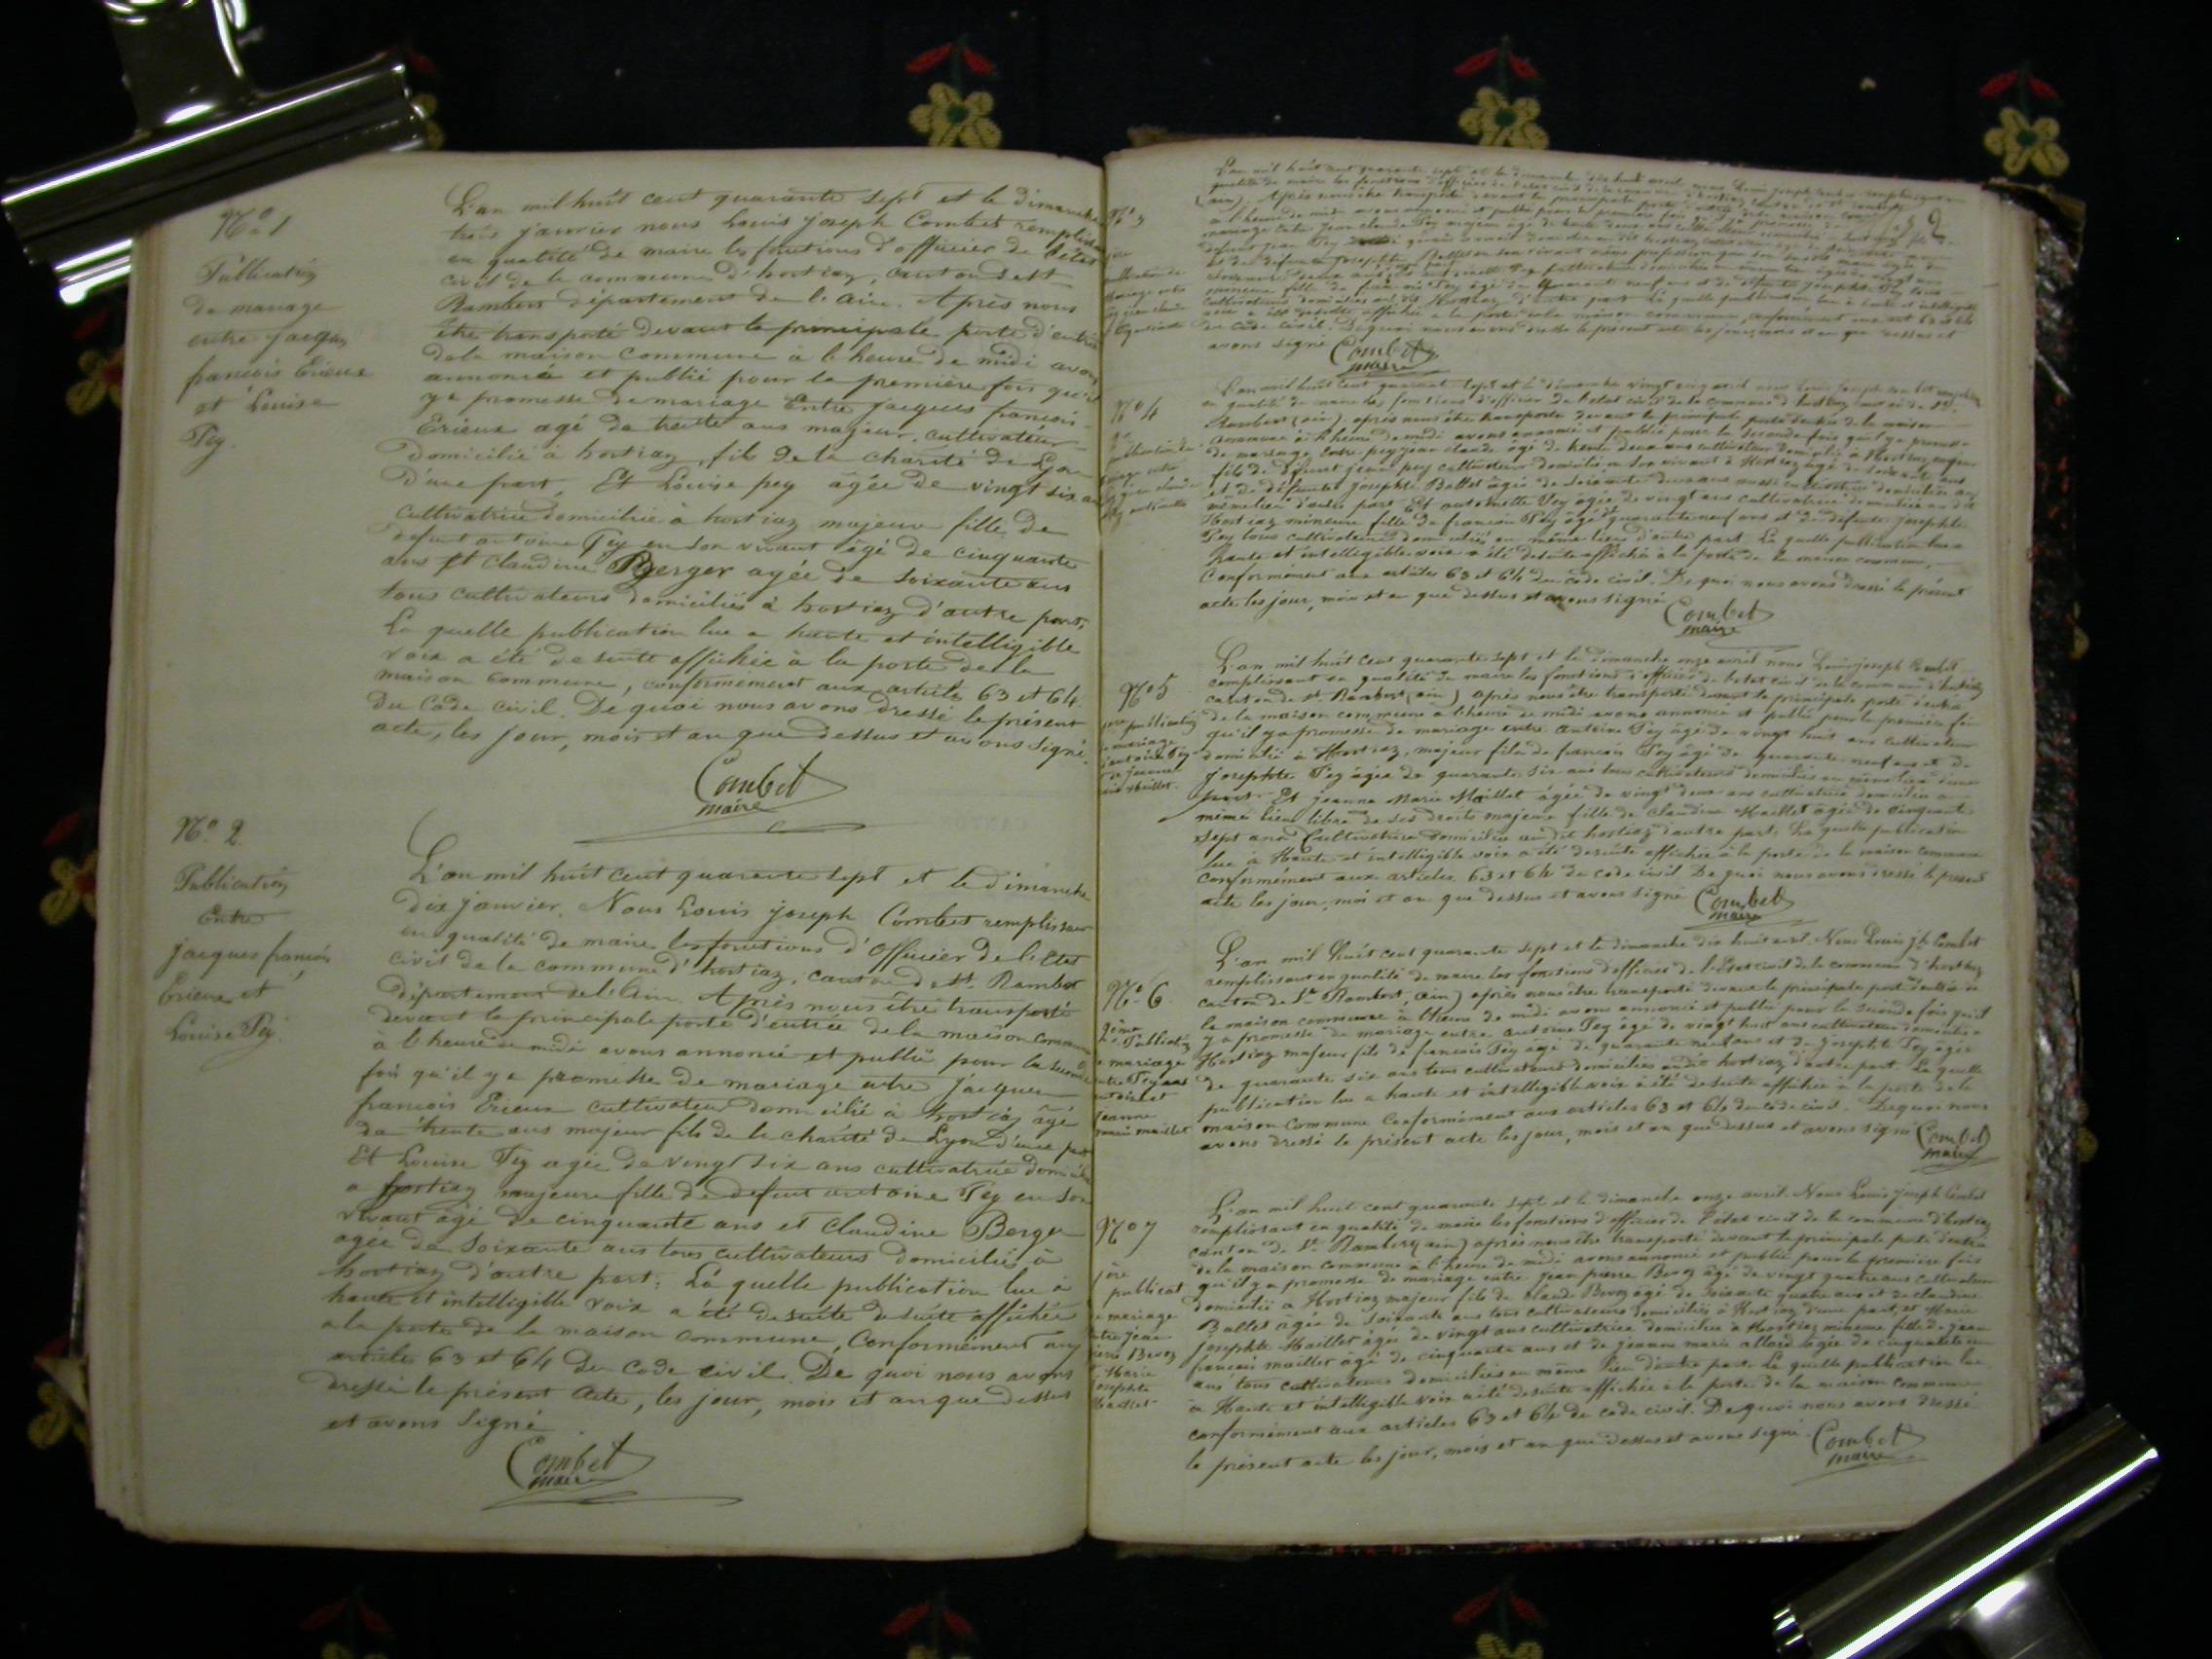 No 1
Publication
de mariage
entre jacques
francois Erieux
et Louise
Pey.
L'an mil huit cent quarante sept et le dimanche
trois janvier nous Louis joseph Combet remplissant
en qualité de maire les fonctions d'officier de l'état
civil de la commune d'hostiaz, canton de St
Rambert département de l'ain. Après nous
être transporté devant la principale porte d'entrée
de la maison commune à l'heure de midi avons
annoncé et publié pour la première fois qu'il
y a promesse de mariage Entre jacques francois
Erieux agé de trente ans majeur, cultivateur
Domicilié à hostiaz, fils de la charité de Lyon
D'une part, Et Louise pey âgée de vingt six ans
cultivatrice domiciliée à hostiaz majeure fille de
defunt antoine Pey en son vivant âgé de cinquante
ans Et Claudine Berger agée de soixante ans
tous cultivateurs domiciliés à hostiaz d'autre part,
La quelle publication lue a haute et intelligible
voix a été de suite affichée à la porte de la
maison commune, conformément aux article 63 et 64
du Code civil. De quoi nous avons dressé le présent
acte, les jour, mois et an que dessus et avons signé.
Combet
maire
No 2
Publication
Entre
jacques francois
Erieux et
Louise Pey.
L'an mil huit cent quarante sept et le dimanche
dix janvier. Nous Louis joseph Combet remplissant
en qualité de maire les fonctions d'Officier de l'Etat
civil de la commune d'hostiaz, canton de St. Rambert
département de l'Ain. Après nous être transporté
devant la principale porte d'entrée de la maison commune
a l'heure de midi avons annoncé et publié pour la seconde
fois qu'il y a promesse de mariage entre jacques
francois Erieux cultivateur domicilié à hostiaz âgé
de trente ans majeur fils de la charité de Lyon d'une part
Et Louise Pey agée de vingt six ans cultivatrice domiciliée
a hostiaz majeure fille de defunt antoine Pey en son
vivant âgé de cinquante ans et Claudine Berger
agée de soixante ans tous cultivateurs domiciliés à
hostiaz d'autre part: La quelle publication lue à
haute et intelligible voix a été de suite de suite affichée
a la porte de la maison commune, Conformément aux
article 63 et 64 du Code civil. De quoi nous avons
dressé le présent Acte, les jour, mois et an que dessus
et avons signé
Combet
maire
No 3
L'an mil huit cent quarante sept et le dimanche dix huit avril, nous Louis joseph Combet remplissant en
qualité de maire les fonctions d'officier de l'état civil de la commune d'hostiaz canton de St Rambert
(ain). Après nous être transporté devant la principale porte
à l'heure de midi avons annoncé et publié pour la première fois qu'il y a promesse de
mariage entre jean claude Pey majeur âgé de trente deux ans
defunt jean Pey
voix a été de suite affichée à la porte de la maison commune, conformément aux art 63 et 64
du Code civil. De quoi nous avons dressé le présent acte les jour, mois et an que dessus et
avons signé
Combet
maire
No 4
L'an mil huit cent quarante sept et le dimanche vingt cinq avril nous Louis joseph Combet remplissant
en qualité de maire les fonctions d'officier de l'etat civil de la commune d'hostiaz canton de St.
Rambert (ain) après nous être transporté devant la principale porte d'entrée de la maison
commune à l'heure de midi avons annoncé et publié pour la seconde fois qu'il y a promesse
de mariage Entre pey jean claude âgé de trente deux ans cultivateur domicilié à Hostiaz majeur
fils de défunt jean pey cultivateur domicilié en son vivant à Hostiaz âgé de soixante ans
et de défunte josephte Ballet âgée de soixante deux ans aussi cultivatrice domiciliée au
même lieu d'autre part Et antoinette Pey âgée de vingt ans cultivatrice domiciliée au dit
Hostiaz mineure fille de francois Pey âgé de quarante neuf ans et de défunte josephte
Pey tous cultivateurs domiciliés au même lieu d'autre part. La quelle publication lue a
haute et intelligible voix a été de suite affichée à la porte de la maison commune,
Conformément aux articles 63 et 64 du code civil. De quoi nous avons dressé le présent
acte les jour, mois et an que dessus et avons signé
Combet
maire
No 5
1ere publication
de mariage
antoine Pey
et jeanne
marie Maillet.
L'an mil huit cent quarante sept et le dimanche onze avril nous Louis joseph Combet
remplissant en qualité de maire les fonctions d'officier de l'etat civil de la commune d'hostiaz
canton de St. Rambert (ain) après nous être transporté devant la principale porte d'entrée
de la maison commune à l'heure de midi avons annoncé et publié pour la première fois
qu'il y a promesse de mariage entre antoine Pey âgé de vingt huit ans cultivateur
domicilié à Hostiaz, majeur fils de francois Pey âgé de quarante neuf ans et de
josephte Pey âgée de quarante six ans tous cultivateurs domiciliés au même lieu d'une
part. Et jeanne Marie Maillet âgée de vingt deux ans cultivatrice domiciliée au
même lieu libre de ses droits majeure fille de Claudine Maillet âgée de cinquante
sept ans Cultivatrice domiciliée au dit hostiaz d'autre part. La quelle publication
lue à Haute et intelligible voix a été de suite affichée à la porte de la maison commune
conformément aux articles 63 et 64 du code civil De quoi nous avons dressé le présent
acte les jour, mois et an que dessus et avons signé
Combet
maire
No 6
2eme
Publication
de mariage
entre Pey
antoine et
jeanne
marie maillet
L'an mil huit cent quarante sept et le dimanche dix huit avril. Nous Louis jh Combet
remplissant en qualité de maire les fonctions d'officier de l'Etat civil de la commune d'hostiaz
canton de St Rambert, (ain) après nous être transporté devant la principale porte d'entrée de
la maison commune à l'heure de midi avons annoncé et publié pour la seconde fois qu'il
y a promesse de mariage entre antoine Pey âgé de vingt huit ans cultivateur domicilié a
Hostiaz majeur fils de francois Pey âgé de quarante neuf ans et de josephte Pey âgée
de quarante six ans tous cultivateurs domiciliés audit hostiaz d'autre part. La quelle
publication lue a haute et intelligible voix a été de suite affichée à la porte de la
maison commune Conformément aux articles 63 et 64 du code civil. De quoi nous
avons dressé le présent acte les jour, mois et an que dessus et avons signé
Combet
maire
No 7
1ere
publicat
de mariage
entre jean
pierre Bevoz
et Marie
josephte
Maillet
L'an mil huit cent quarante sept et le dimanche onze avril. Nous Louis joseph Combet
remplissant en qualité de maire les fonctions d'officier de l'état civil de la commune d'hostiaz
canton de St. Rambert (ain) après nous être transporté devant la principale porte d'entrée
de la maison commune à l'heure de midi avons annoncé et publié pour la première fois
qu'il y a promesse de mariage entre jean pierre Bevoz âgé de vingt quatre ans cultivateur
domicilié a Hostiaz majeur fils de claude Bevoz âgé de soixante quatre ans et de claudine
Ballet âgée de soixante ans tous cultivateurs domiciliés à Hostiaz d'une part, et Marie
josephte Maillet âgée de vingt ans cultivatrice domiciliée à Hostiaz mineure fille de jean
francois maillet âgé de cinquante ans et de jeanne marie allard âgée de cinquante
ans tous cultivateurs domiciliés au même lieu d'autre part. La quelle publication lue
à Haute et intelligible voix a été de suite affichée à la porte de la maison commune
conformément aux articles 63 et 64 du code civil. De quoi nous avons dressé
le présent acte les jour, mois et an que dessus et avons signé
Combet
maire